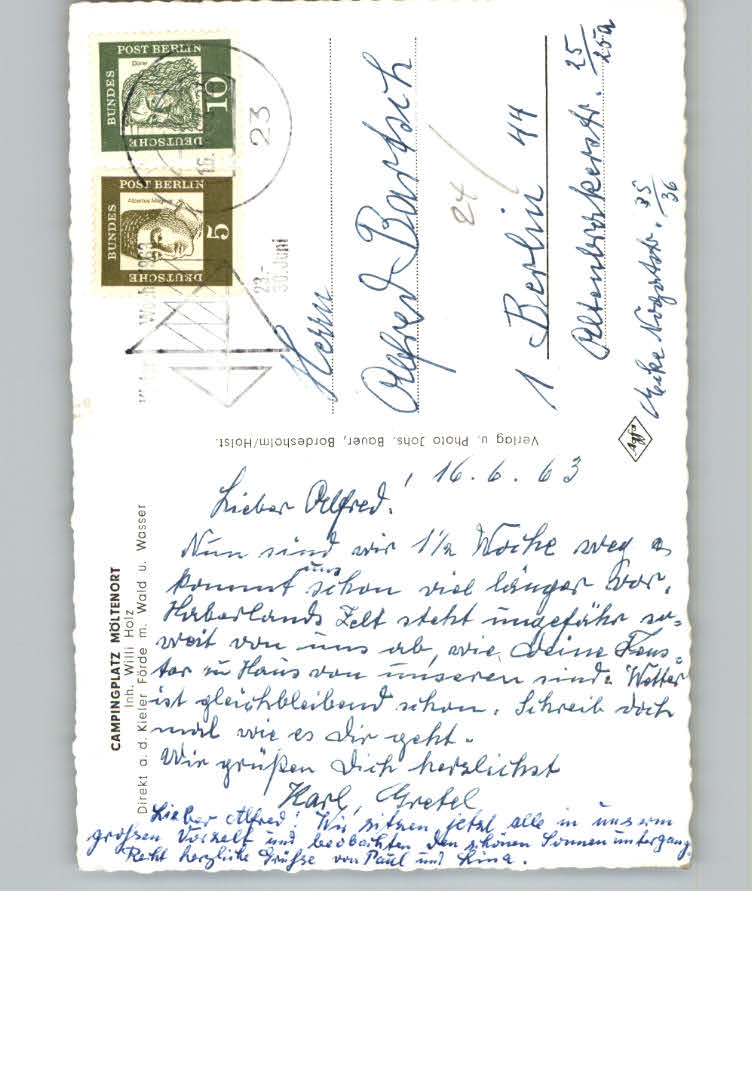 CAMPINGPLATZ MÖLTENORT
Inh. Willi Holz
Direkt a. d. Kieler Förde m. Wald u. Wasser
16. 6. 63
Lieber Alfred!
Nun sind wir 1½ Woche weg es
kommt uns schon viel länger vor.
Haberlands Zelt steht ungefähr so-
weit von uns ab, wie Deine Fens-
ter zu Haus von unseren sind. Wetter
ist gleichbleibend schön. Schreib doch
mal wie es Dir geht.
Wir grüßen Dich herzlichst
Karl, Gretel
Lieber Alfred! Wir sitzen jetzt alle in unserm
großen Vorzelt und beobachten den schönen Sonnenuntergang.
Recht herzliche Grüße von Paul und Lina.
Verlag u. Photo Johs. Bauer, Bordesholm/Holst.
Agfa
DEUTSCHE BUNDES POST BERLIN
Dürer
10
DEUTSCHE BUNDES POST BERLIN
Albertus Magnus
5
23
16.
22.-
30. Juni
Herrn
Alfred Bartsch
24
1 Berlin 44
25
25a
35
36